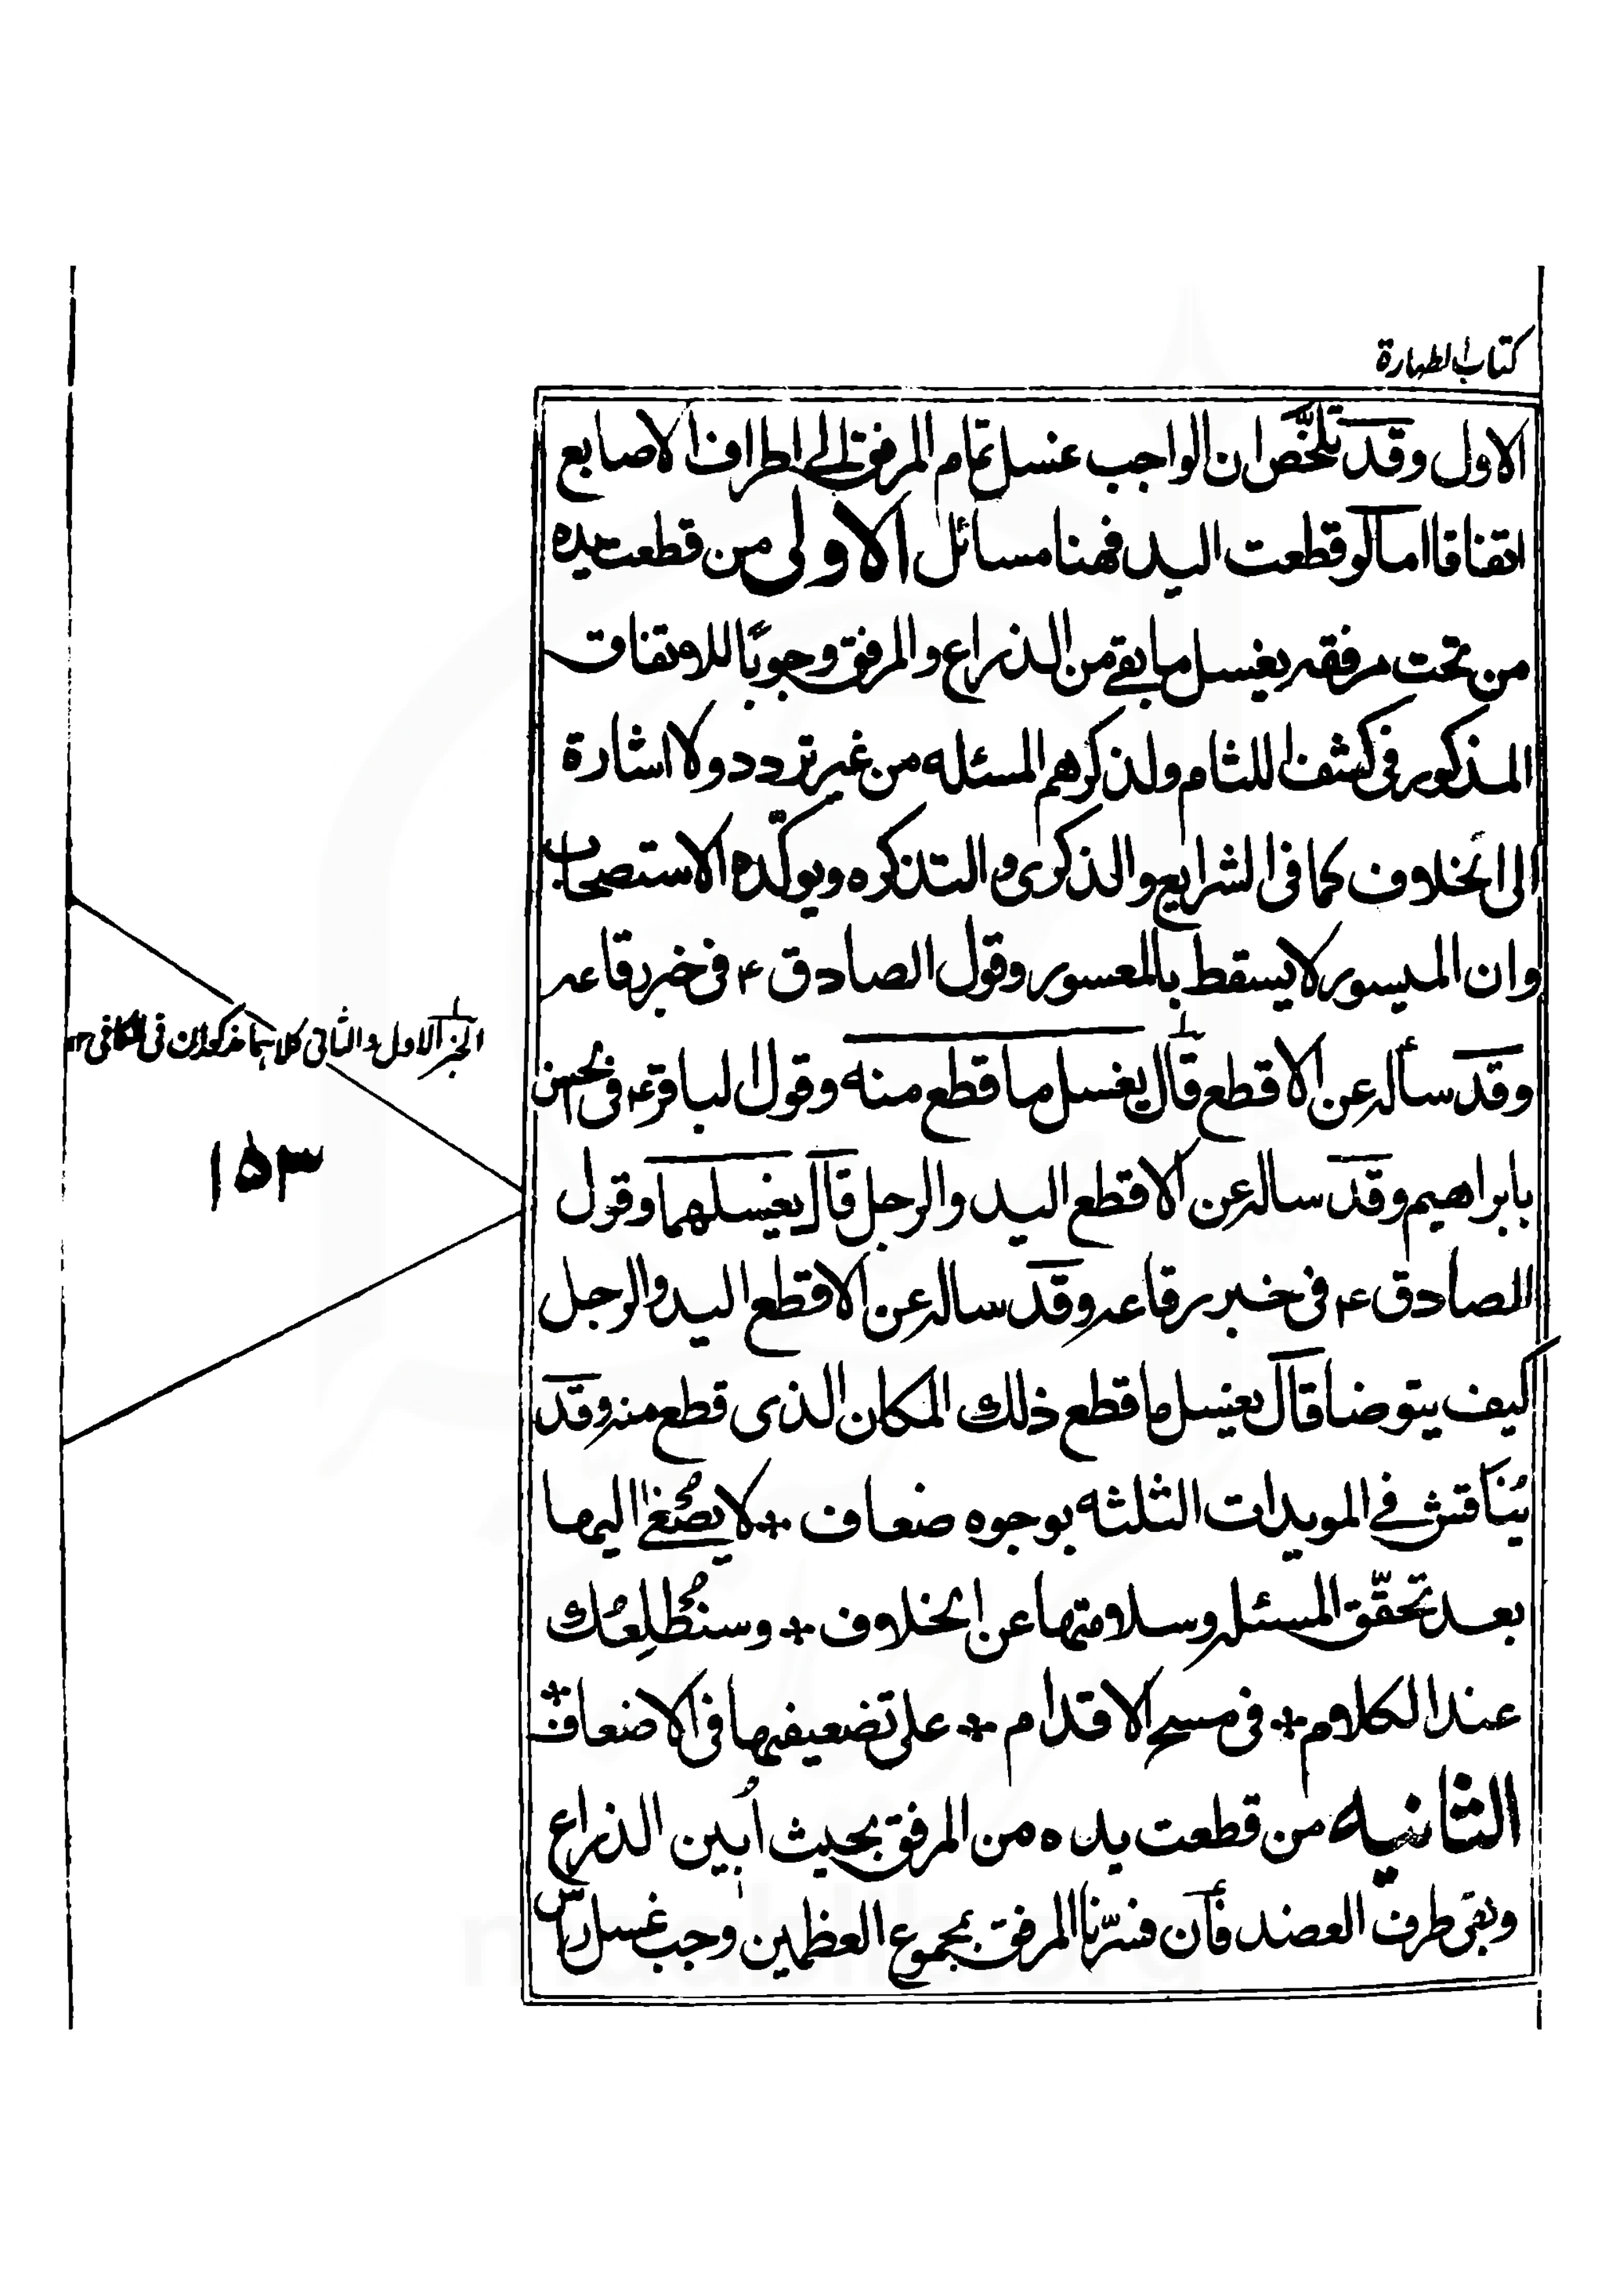 كتاب الطهارة
الاول وقد تلخّص ان الواجب غسل تمام المرفق الى اطراف الاصابع
اتفاقا اما لو قطعت اليد فهنا مسائل الاولى من قطعت يده
من تحت مرفقه يغسل ما بقے من الذراع والمرفق وجوبًا للاتفاق
المذكور فى كشف اللثام ولذكرهم المسئله من غير تردد ولا اشارة
الى الخلاف كما فى الشرايع والذكرى والتذكره ويوكّده الاستصحاب
وان الميسور لا يسقط بالمعسور وقول الصادق ع فى خبر رقاعه
وقد سأله عن الاقطع قال يغسل ما قطع منه وقول الباقر ع فى حسن
بابراهيم وقد ساله عن الاقطع اليد والرجل قال يغسلهما وقول
الصادق ع فى خبر رقاعه وقد ساله عن الاقطع اليد والرجل
كيف يتوضا قال يغسل ما قطع ذلك المكان الذى قطع منه وقد
يُناقش فے المويدات الثلثه بوجوه ضعاف * لا يصُغےٰ اليها
بعد تحقّق المسئله وسلامتها عن الخلاف * وسنُطْلِعُك
عند الكلام * فى مسح الاقدام * على تضعيفها فى الاضعاف *
الثانيه من قطعت يده من المرفق بحيث اُبين الذراع
وبقى طرف العضد فان فسّرنا المرفق بمجموع العظمين وجب غسل راس
الخبر الاول والثانى كلاهما مذكوران فى الكافى ١٢
١٥٣